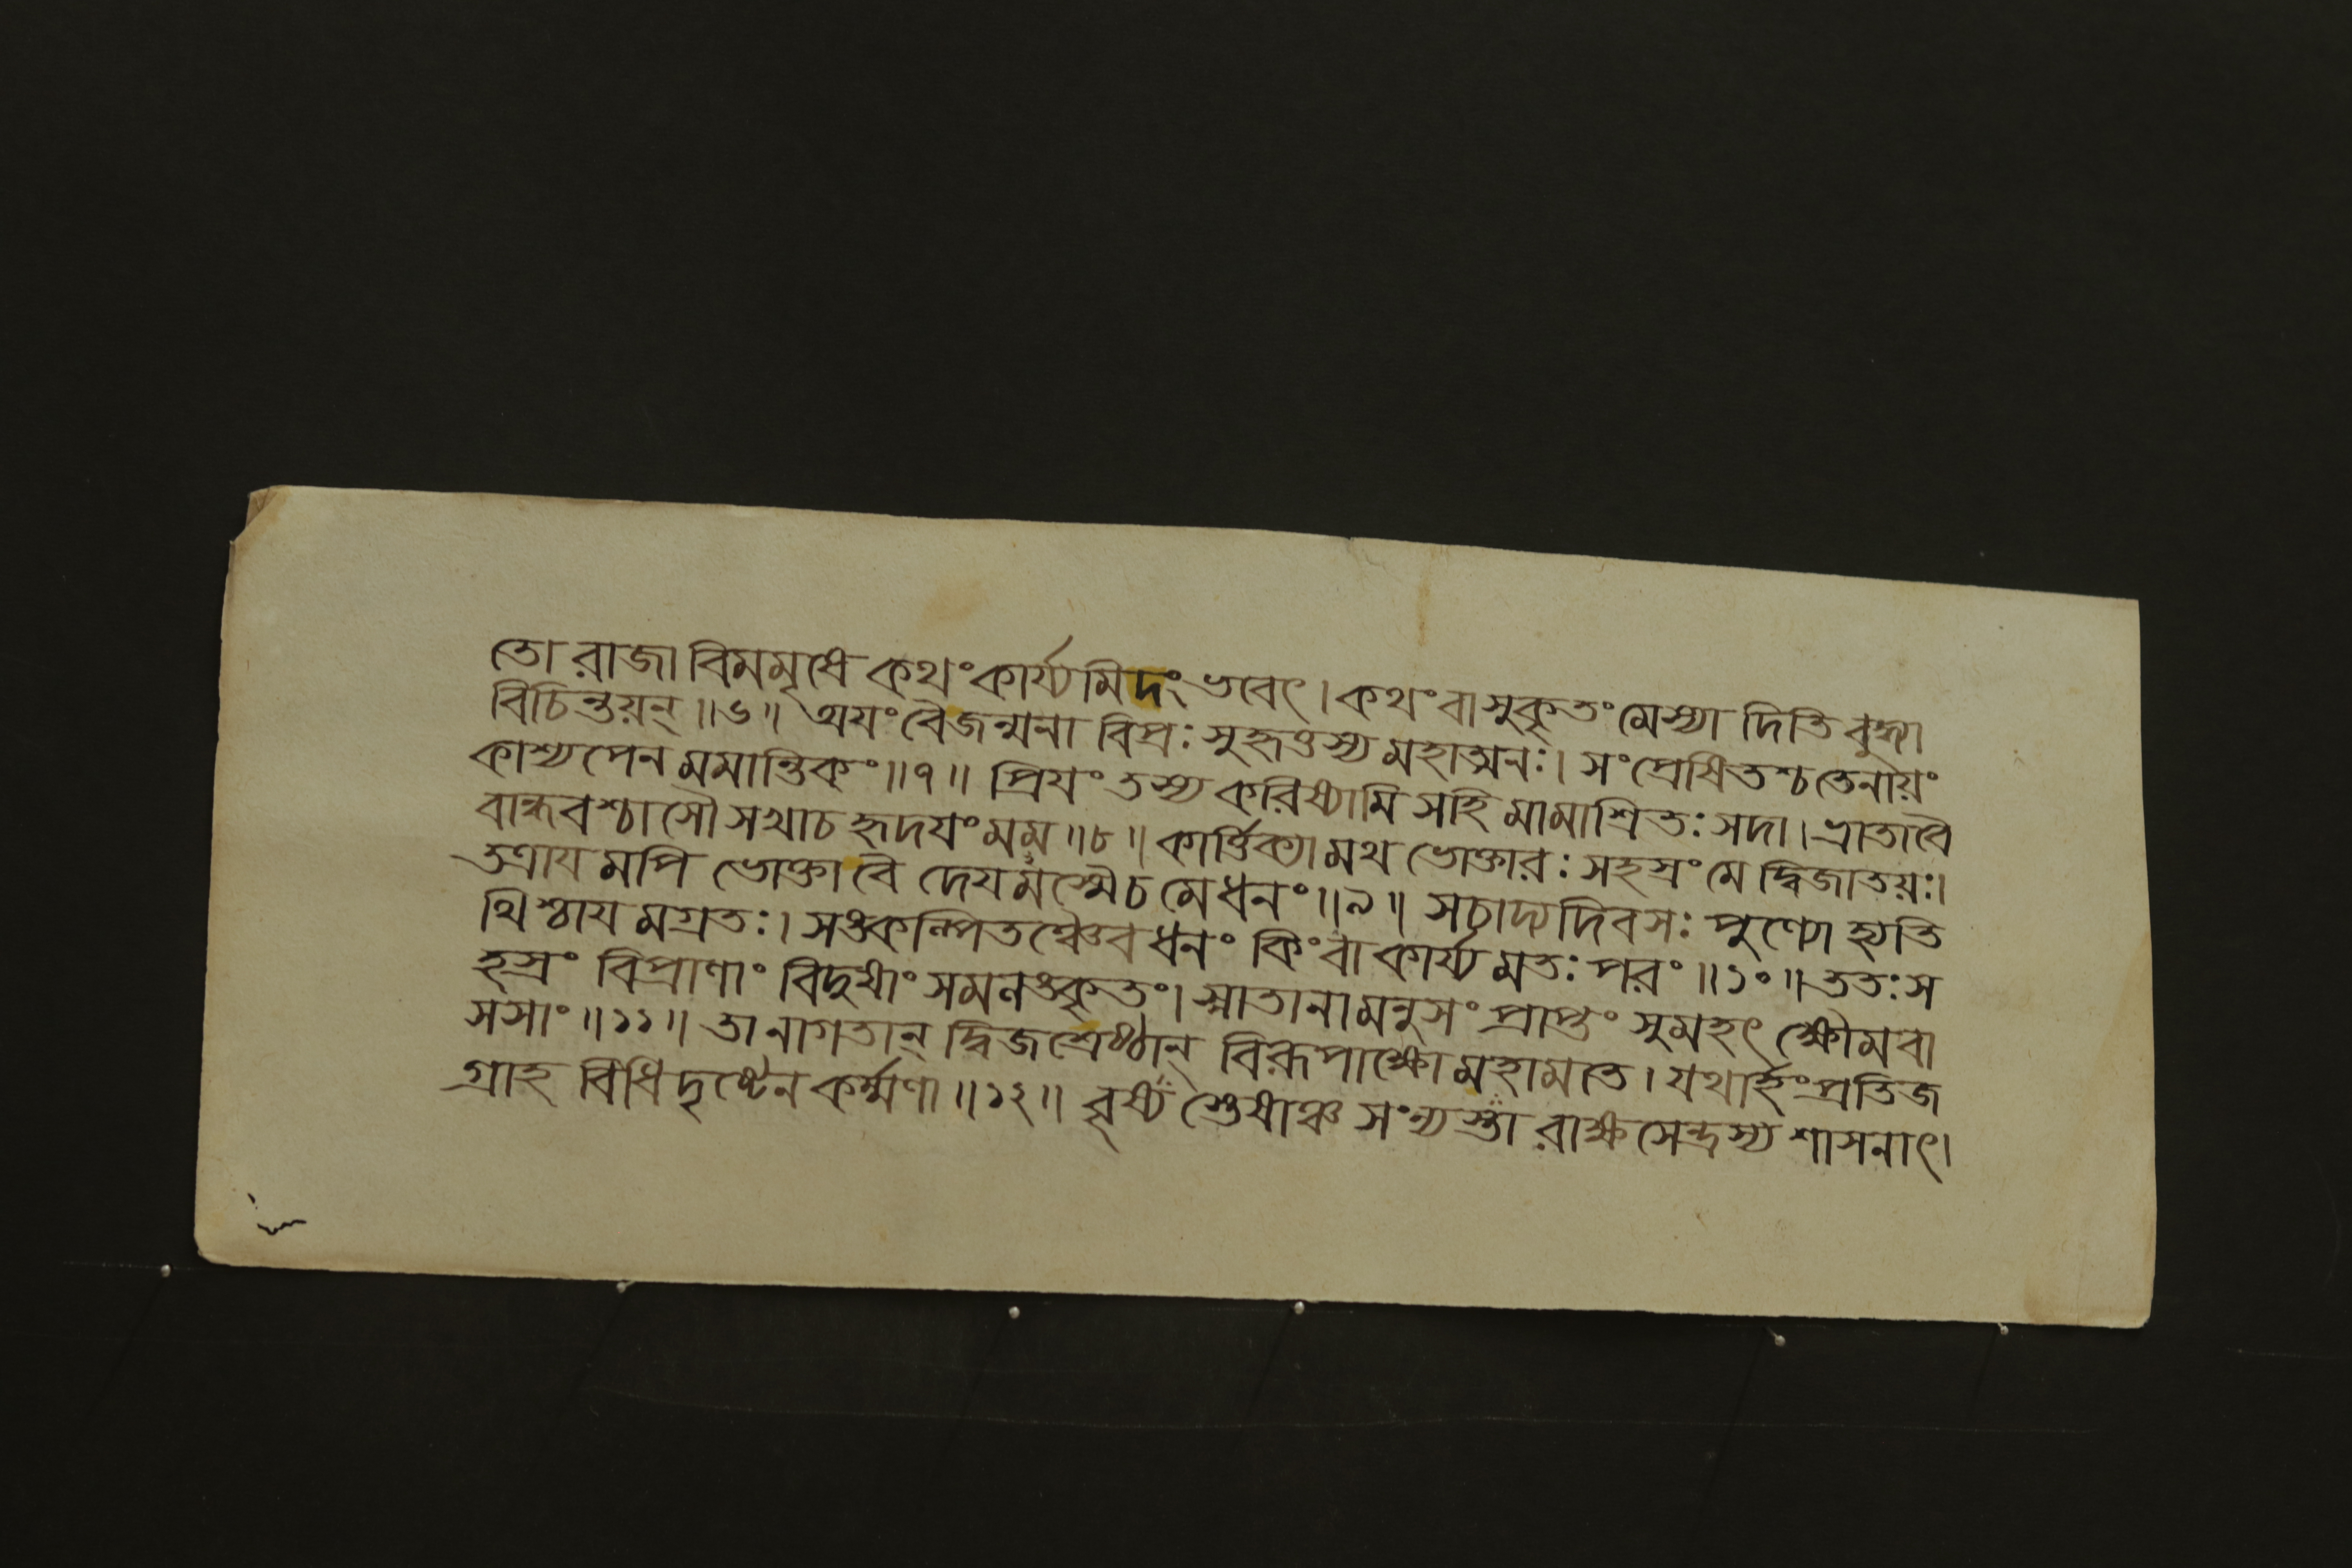 তো রাজা বিমমৃষে কথং কার্য্যমিদং ভবেৎ। কথং বা সুকৃতং মেস্যা দিতি বুদ্ধ্যা
বিচিন্তয়ন্॥৬॥ অযং বৈজন্মনা বিপ্রঃ সুহৃত্তস্য মহাত্মনঃ। সংপ্রেষিতশ্চ তেনায়ং
কাশ্যপেন মমান্তিকং॥৭॥ প্রিযং তস্য করিষ্যামি সহি মামাশ্রিতঃ সদা। ভ্রাতাবৈ
বান্ধবশ্চাসৌ সখাচ হৃদযংমম॥৮॥ কার্ত্তিক্যামথ ভোক্তারঃ সহস্রং মে দ্বিজাতয়ঃ।
তত্রায মপি ভোক্তা বৈ দেযমস্মৈচ মেধনং॥৯॥ সচাদ্য দিবসঃ পুণ্যো হ্যতি
থিশ্চায মগ্রতঃ। সঙ্কল্পিতঞ্চৈব ধনং কিংবা কার্য্য মতঃ পরং॥১০॥ ততঃ স
হস্রং বিপ্রাণাং বিদুষাং সমলঙ্কৃতং। স্নাতানামনুসং প্রাপ্তং সুমহৎ ক্ষৌমবা
সসাং॥১১॥ তানাগতান্ দ্বিজশ্রেষ্ঠান্ বিরূপাক্ষো মহামতে। যথার্হং প্রতিজ
গ্রাহ বিধিদৃষ্টেন কর্ম্মণা॥১২॥ বৃষ্যশ্তেষাঞ্চ সংন্যস্তা রাক্ষসেন্দ্রস্য শাসনাৎ।